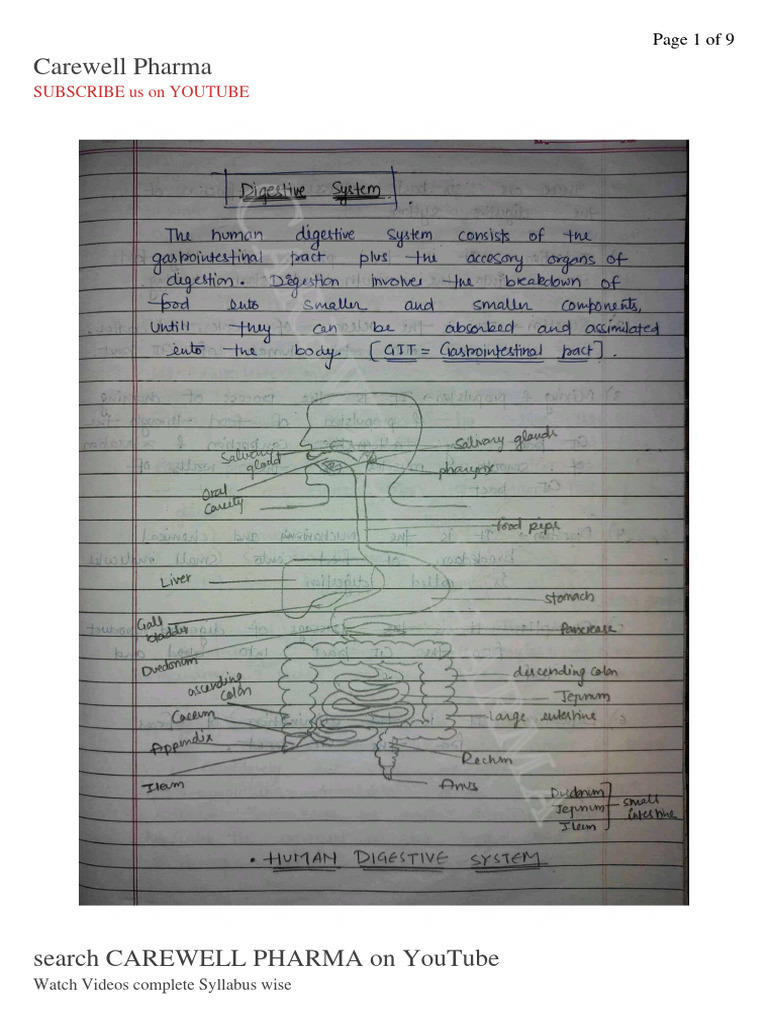 Page 1 of 9
Carewell Pharma
SUBSCRIBE us on YOUTUBE
Digestive System
The human digestive system consists of the
gastrointestinal tract plus the accesory organs of
digestion. Digestion involves the breakdown of
food into smaller and smaller components,
untill they can be absorbed and assimilated
into the body. [GIT = Gastrointestinal tract].
Salivary glands
Salivary
gland
pharynx
Oral
cavity
food pipe
Liver
stomach
Gall
bladder
Pancrease
Duedonum
descending colon
ascending
colon
Jejnum
Caecum
large intestine
Appendix
Rectum
Ileum
Anus
Duedonum
Jejnum
Ileum
small
intestine
• HUMAN DIGESTIVE SYSTEM
search CAREWELL PHARMA on YouTube
Watch Videos complete Syllabus wise